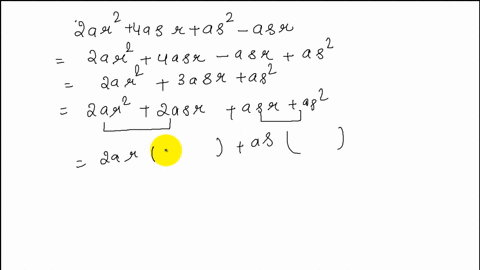 2ar² + 4asr + as² - asr
= 2ar² + 4asr - asr + as²
= 2ar² + 3asr + as²
= 2ar² + 2asr + asr + as²
= 2ar ( ) + as ( )